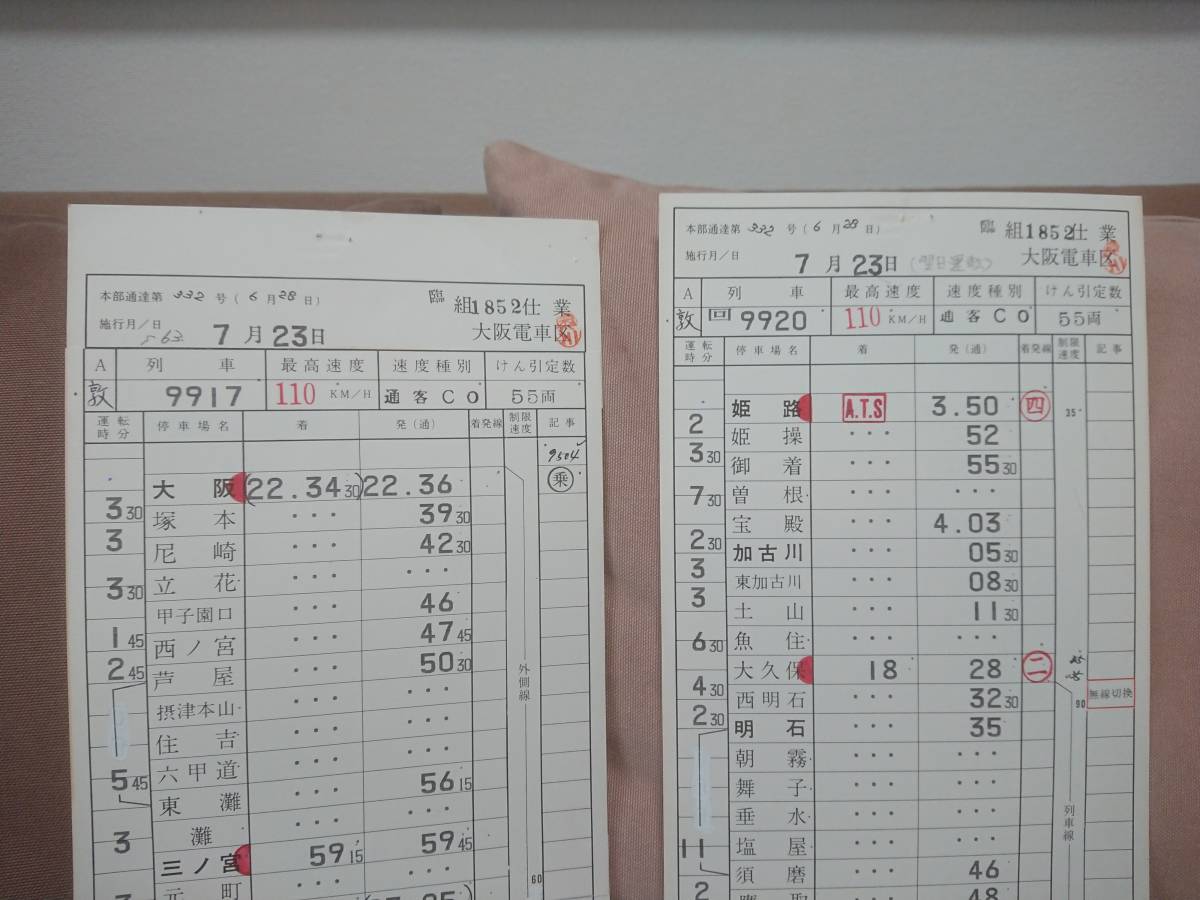 本部通達第 332 号 ( 6 月 28 日 )
臨 組 1852 仕業
施行月/日 7 月 23 日
大阪電車区
A 列車 最高速度 速度種別 けん引定数
敦 9917 110 KM/H 通客 C0 55両
運転時分 停車場名 着 発(通) 着発線 制限速度 記事
9504
大阪 (22.34 30) 22.36 乗
3 30
塚本 ・・・ 39 30
3
尼崎 ・・・ 42 30
立花 ・・・ ・・・
3 30
甲子園口 ・・・ 46
1 45
西ノ宮 ・・・ 47 45
2 45
芦屋 ・・・ 50 30
外側線
摂津本山 ・・・ ・・・
住吉 ・・・ ・・・
六甲道 ・・・ ・・・
5 45
東灘 ・・・ 56 15
灘 ・・・ ・・・
3
三ノ宮 59 15 59 45
60
元町 ・・・
本部通達第 332 号 ( 6 月 28 日 )
臨 組 1852 仕業
施行月/日 7 月 23 日
大阪電車区
A 列車 最高速度 速度種別 けん引定数
敦 回 9920 110 KM/H 通客 C0 55両
運転時分 停車場名 着 発(通) 着発線 制限速度 記事
姫路 A.T.S 3.50 四 35
2
姫操 ・・・ 52
3 30
御着 ・・・ 55 30
7 30
曽根 ・・・ ・・・
宝殿 ・・・ 4.03
2 30
加古川 ・・・ 05 30
3
東加古川 ・・・ 08 30
3
土山 ・・・ 11 30
6 30
魚住 ・・・ ・・・
大久保 18 28 二
4 30
西明石 ・・・ 32 30 90 無線切換
2 30
明石 ・・・ 35
朝霧 ・・・ ・・・
舞子 ・・・ ・・・
垂水 ・・・ ・・・
列車線
塩屋 ・・・ ・・・
11
須磨 ・・・ 46
2
鷹取 ・・・ 48